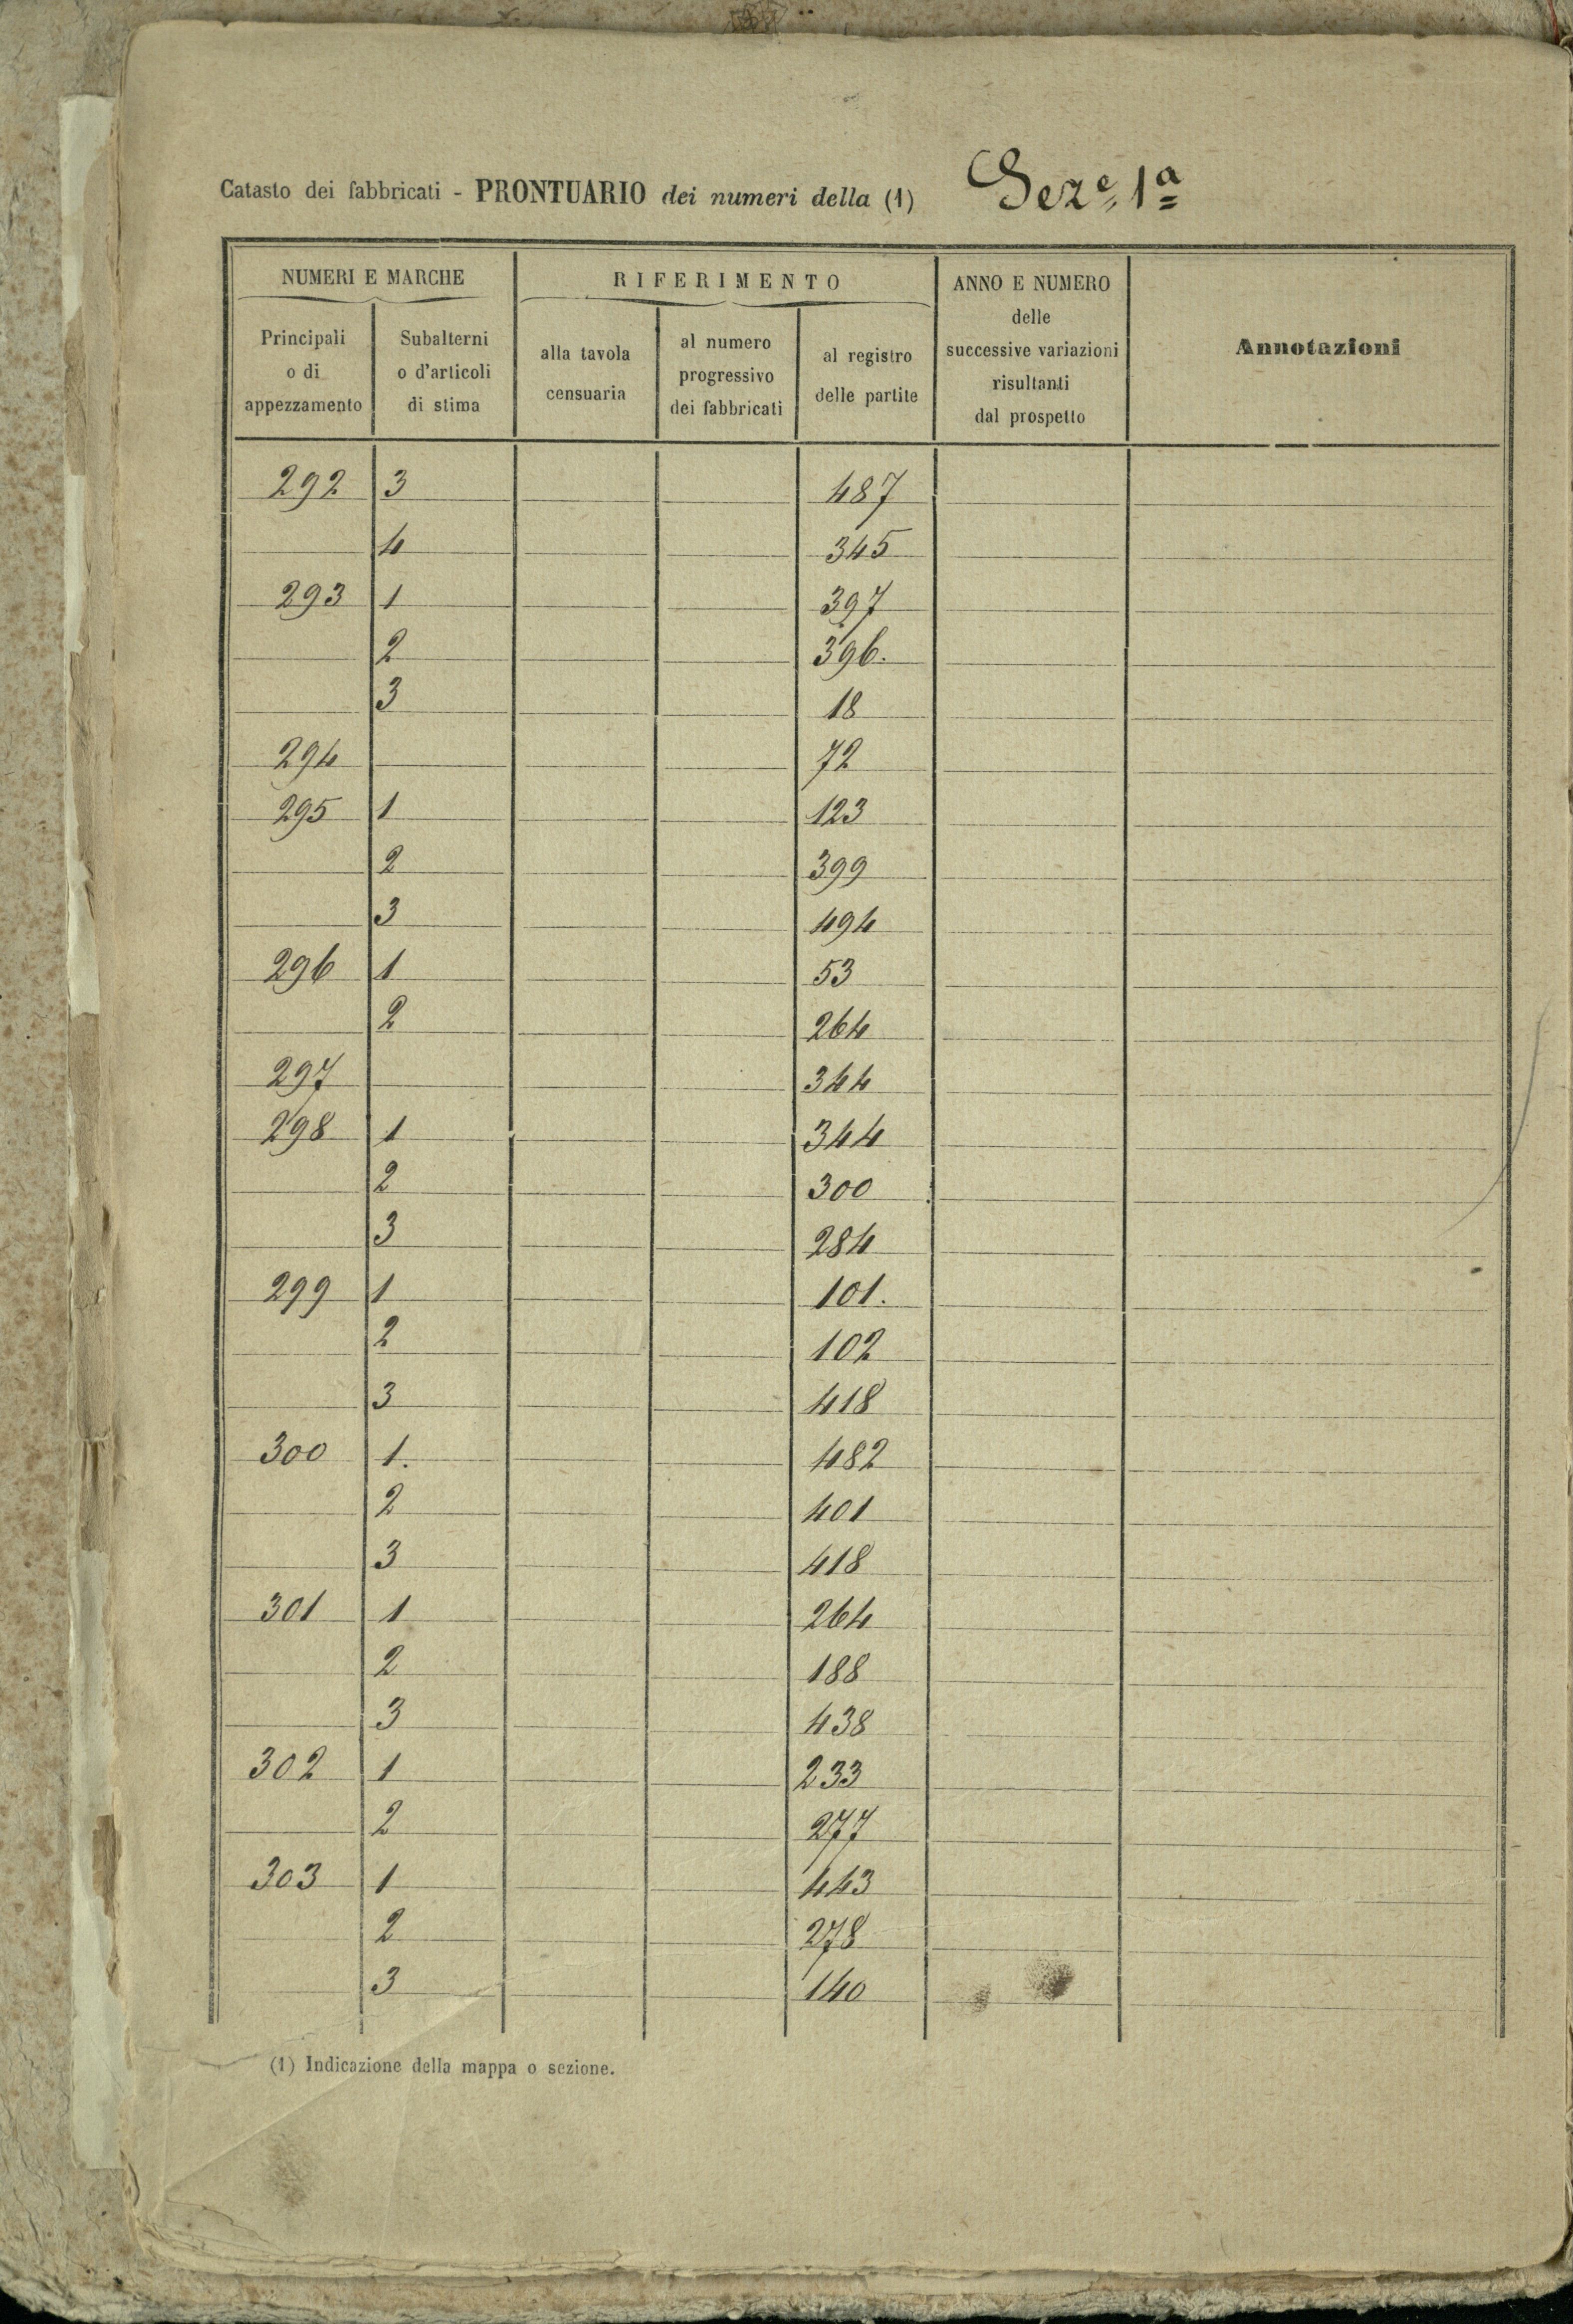 Catasto dei fabbricati - PRONTUARIO dei numeri della (1) Seze 1a
NUMERI E MARCHE
RIFERIMENTO
ANNO E NUMERO
delle
successive variazioni
risultanti
dal prospetto
Annotazioni
Principali
o di
appezzamento
Subalterni
o d'articoli
di stima
alla tavola
censuaria
al numero
progressivo
dei fabbricati
al registro
delle partite
292 3 487
4 345
293 1 397
2 396.
3 18
294 72
295 1 123
2 399
3 494
296 1 53
2 264
297 344
298 1 344
2 300
3 284
299 1 101.
2 102
3 418
300 1. 482
2 401
3 418
301 1 264
2 188
3 438
302 1 233
2 277
303 1 443
2 278
3 140
(1) Indicazione della mappa o sezione.